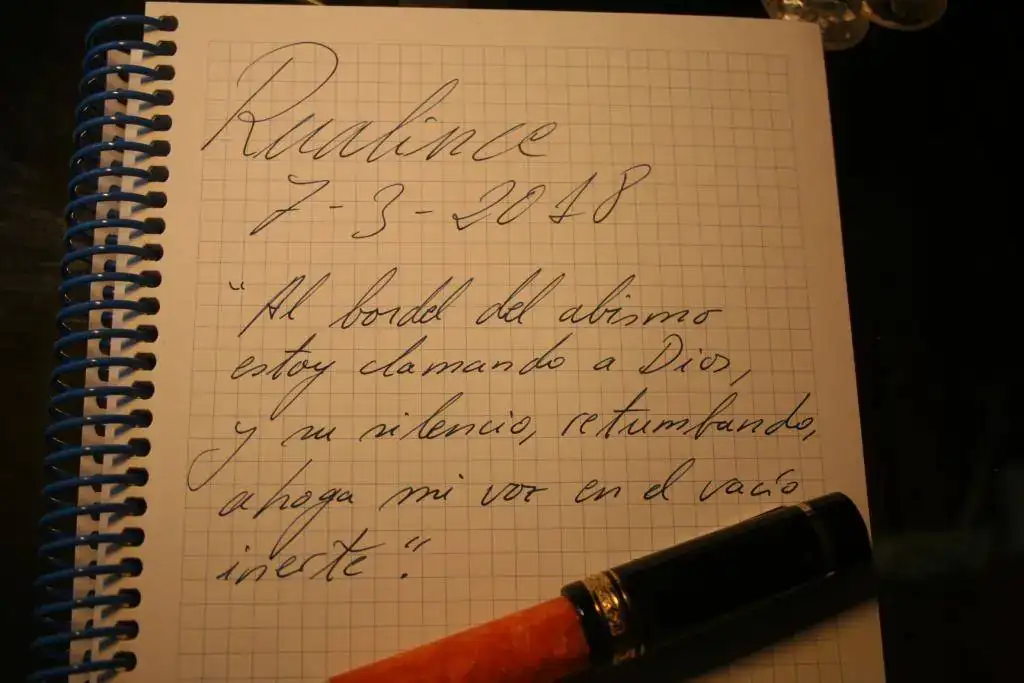 Rualince
7-3-2018
"Al bordel del abismo
estoy clamando a Dios,
y su silencio, retumbando,
ahoga mi voz en el vacío
inerte".